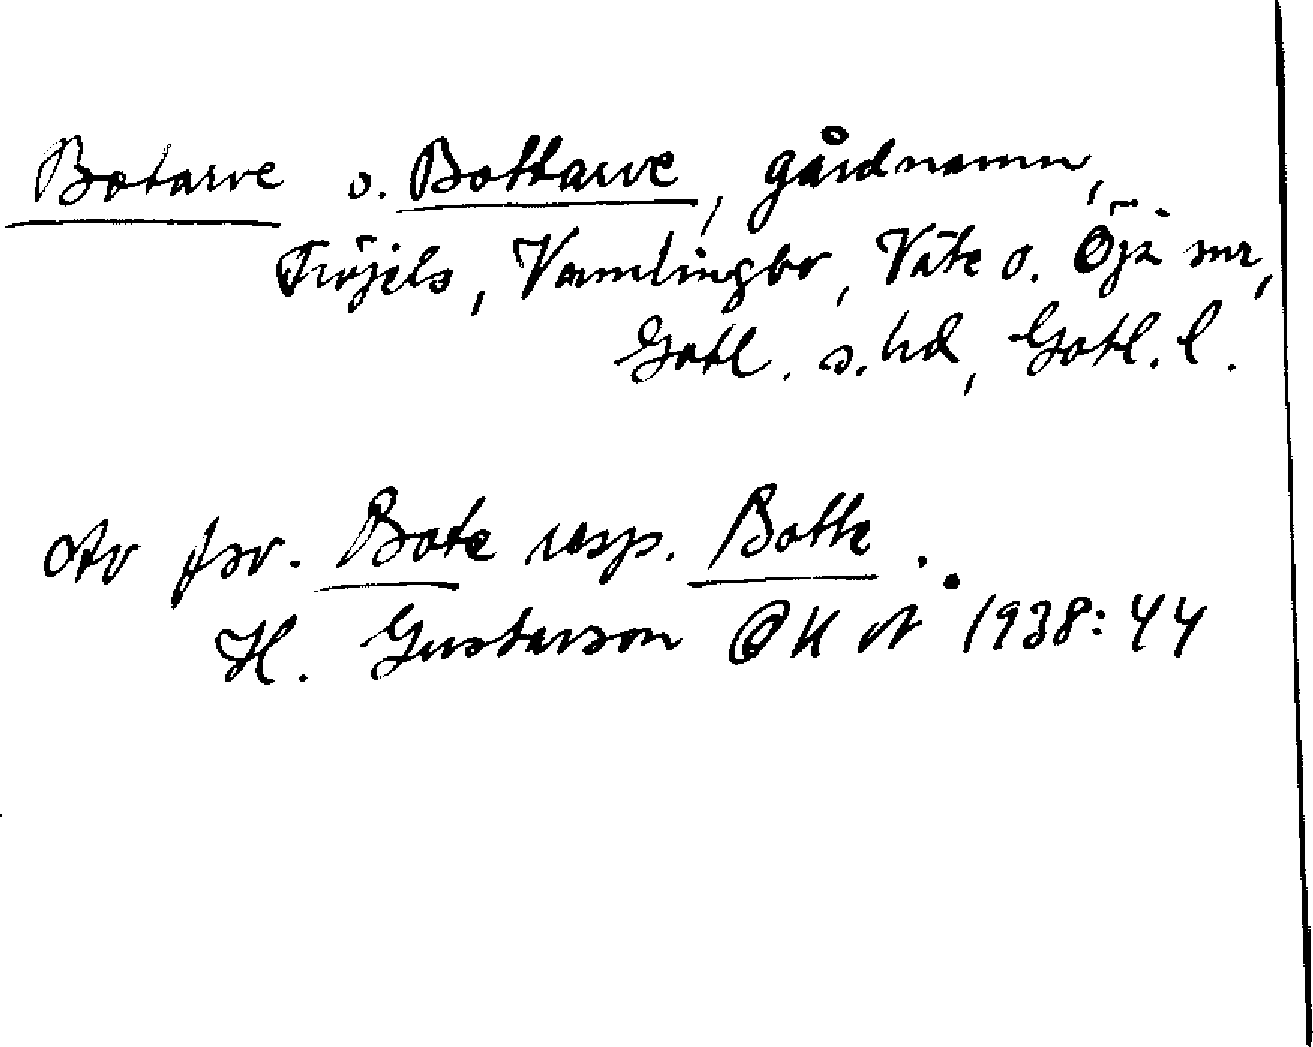 Botarve o. Bottarve, gårdnamn,
Fröjels, Vamlingbo, Väte o. Öja snr,
Gotl. s. hd, Gotl. l.
Av pnr. Bote resp. Botte.
H. Gustavson GKN 1938:44